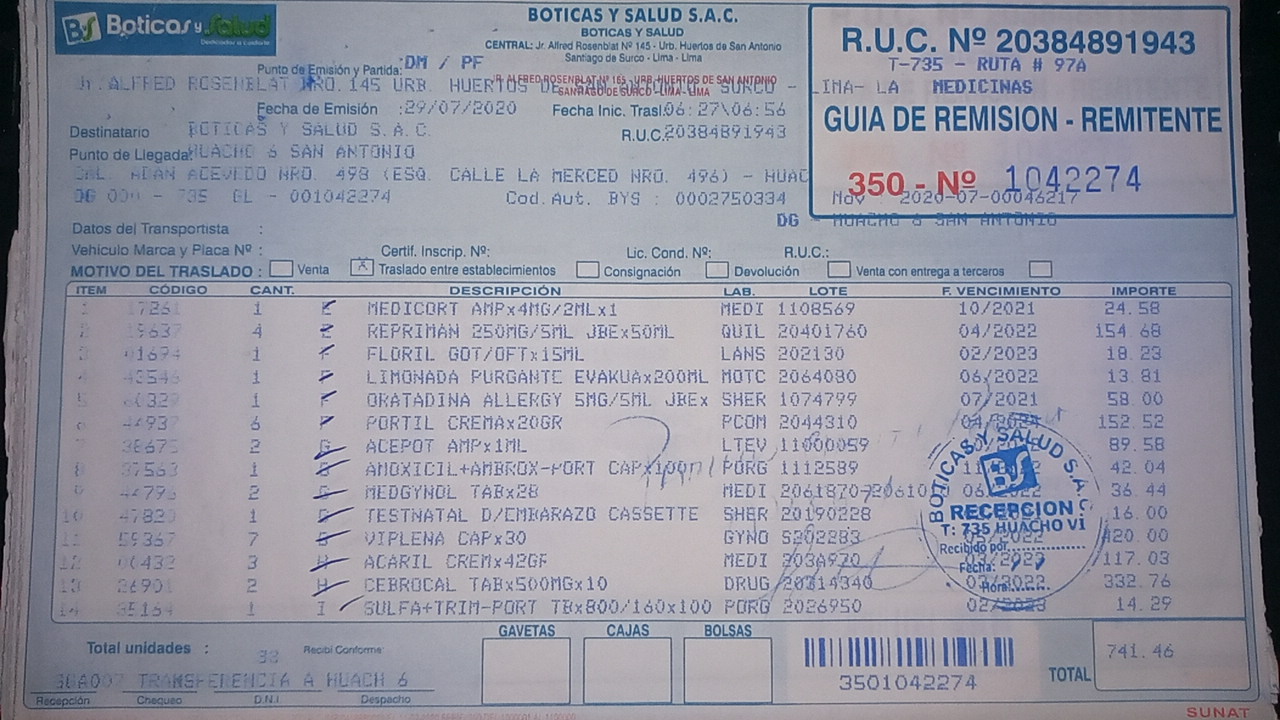 BS Boticas y Salud
Dedicados a cuidarte
BOTICAS Y SALUD S.A.C.
BOTICAS Y SALUD
CENTRAL: Jr. Alfred Rosenblat Nº 145 - Urb. Huertos de San Antonio
Santiago de Surco - Lima - Lima
R.U.C. Nº 20384891943
T-735 - RUTA # 97A
MEDICINAS
GUIA DE REMISION - REMITENTE
350 - Nº 1042274
Punto de Emisión y Partida: DM / PF
Jr. ALFRED ROSENBLAT NRO. 145 URB. HUERTOS DE SURCO - LIMA- LA
JR. ALFRED ROSENBLAT Nº 165 - URB. HUERTOS DE SAN ANTONIO
SANTIAGO DE SURCO - LIMA - LIMA
Fecha de Emisión :29/07/2020 Fecha Inic. Trasl. 06:27\06:56
Destinatario BOTICAS Y SALUD S.A.C. R.U.C. 20384891943
Punto de Llegada: HUACHO 6 SAN ANTONIO
CAL. ADAN ACEVEDO NRO. 498 (ESQ. CALLE LA MERCED NRO. 496) - HUAC
DG 000 - 735 GL - 001042274 Cod.Aut. BYS : 0002750334 Nov 2020-07-00046217
DG HUACHO 6 SAN ANTONIO
Datos del Transportista :
Vehículo Marca y Placa Nº : Certif. Inscrip. Nº: Lic. Cond. Nº: R.U.C.:
MOTIVO DEL TRASLADO : Venta X Traslado entre establecimientos Consignación Devolución Venta con entrega a terceros
ITEM CÓDIGO CANT. DESCRIPCIÓN LAB. LOTE F. VENCIMIENTO IMPORTE
1 17261 1 MEDICORT AMPx4MG/2MLx1 MEDI 1108569 10/2021 24.58
2 19637 4 REPRIMAN 250MG/5ML JBEx50ML QUIL 20401760 04/2022 154.68
3 41694 1 F FLORIL GOT/OFTx15ML LANS 202130 02/2023 18.23
4 43546 1 F LIMONADA PURGANTE EVAKUAx200ML MOTC 2064080 06/2022 13.81
5 60329 1 F ORATADINA ALLERGY 5MG/5ML JBEx SHER 1074799 07/2021 58.00
6 44937 6 F PORTIL CREMAx20GR PCOM 2044310 152.52
7 38675 2 G ACEPOT AMPx1ML LTEV 11000059 89.58
8 37563 1 G AMOXICIL+AMBROX-PORT CAPx100 PORG 1112589 42.04
9 44796 2 G MEDGYNOL TABx28 MEDI 36.44
10 47820 1 G TESTNATAL D/EMBARAZO CASSETTE SHER 20190228 16.00
11 59367 7 G VIPLENA CAPx30 GYNO S202283 420.00
12 00432 3 H ACARIL CREMx42GF MEDI 303A970 117.03
13 26901 2 H CEBROCAL TABx500MGx10 DRUG 20314340 332.76
14 35164 1 I SULFA+TRIM-PORT TBx800/160x100 PORG 2026950 02/2023 14.29
BOTICAS Y SALUD S.A.C.
BS
RECEPCION
T: 735 HUACHO VI
Recibido por
Fecha:
Hora:
Total unidades : 33 Recibí Conforme: GAVETAS CAJAS BOLSAS
3501042274
TOTAL 741.46
TRANSFERENCIA A HUACH 6
Recepción Chequeo D.N.I. Despacho
SUNAT